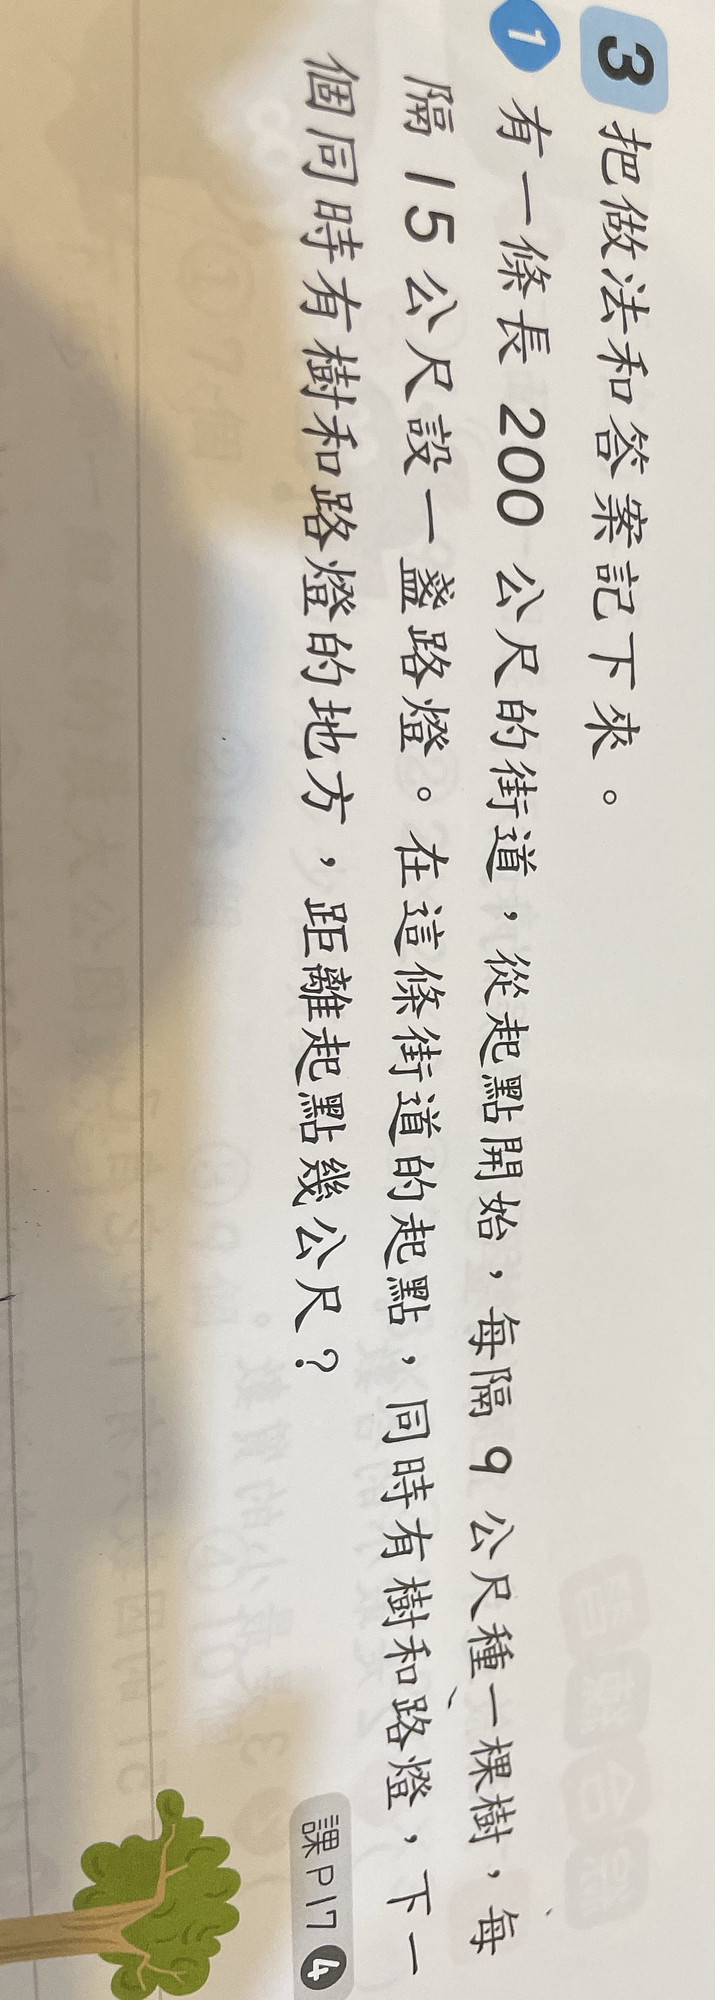 3 把做法和答案記下來。
1 有一條長 200 公尺的街道，從起點開始，每隔 9 公尺種一棵樹，每
隔 15 公尺設一盞路燈。在這條街道的起點，同時有樹和路燈，下一
個同時有樹和路燈的地方，距離起點幾公尺？
課P17 4